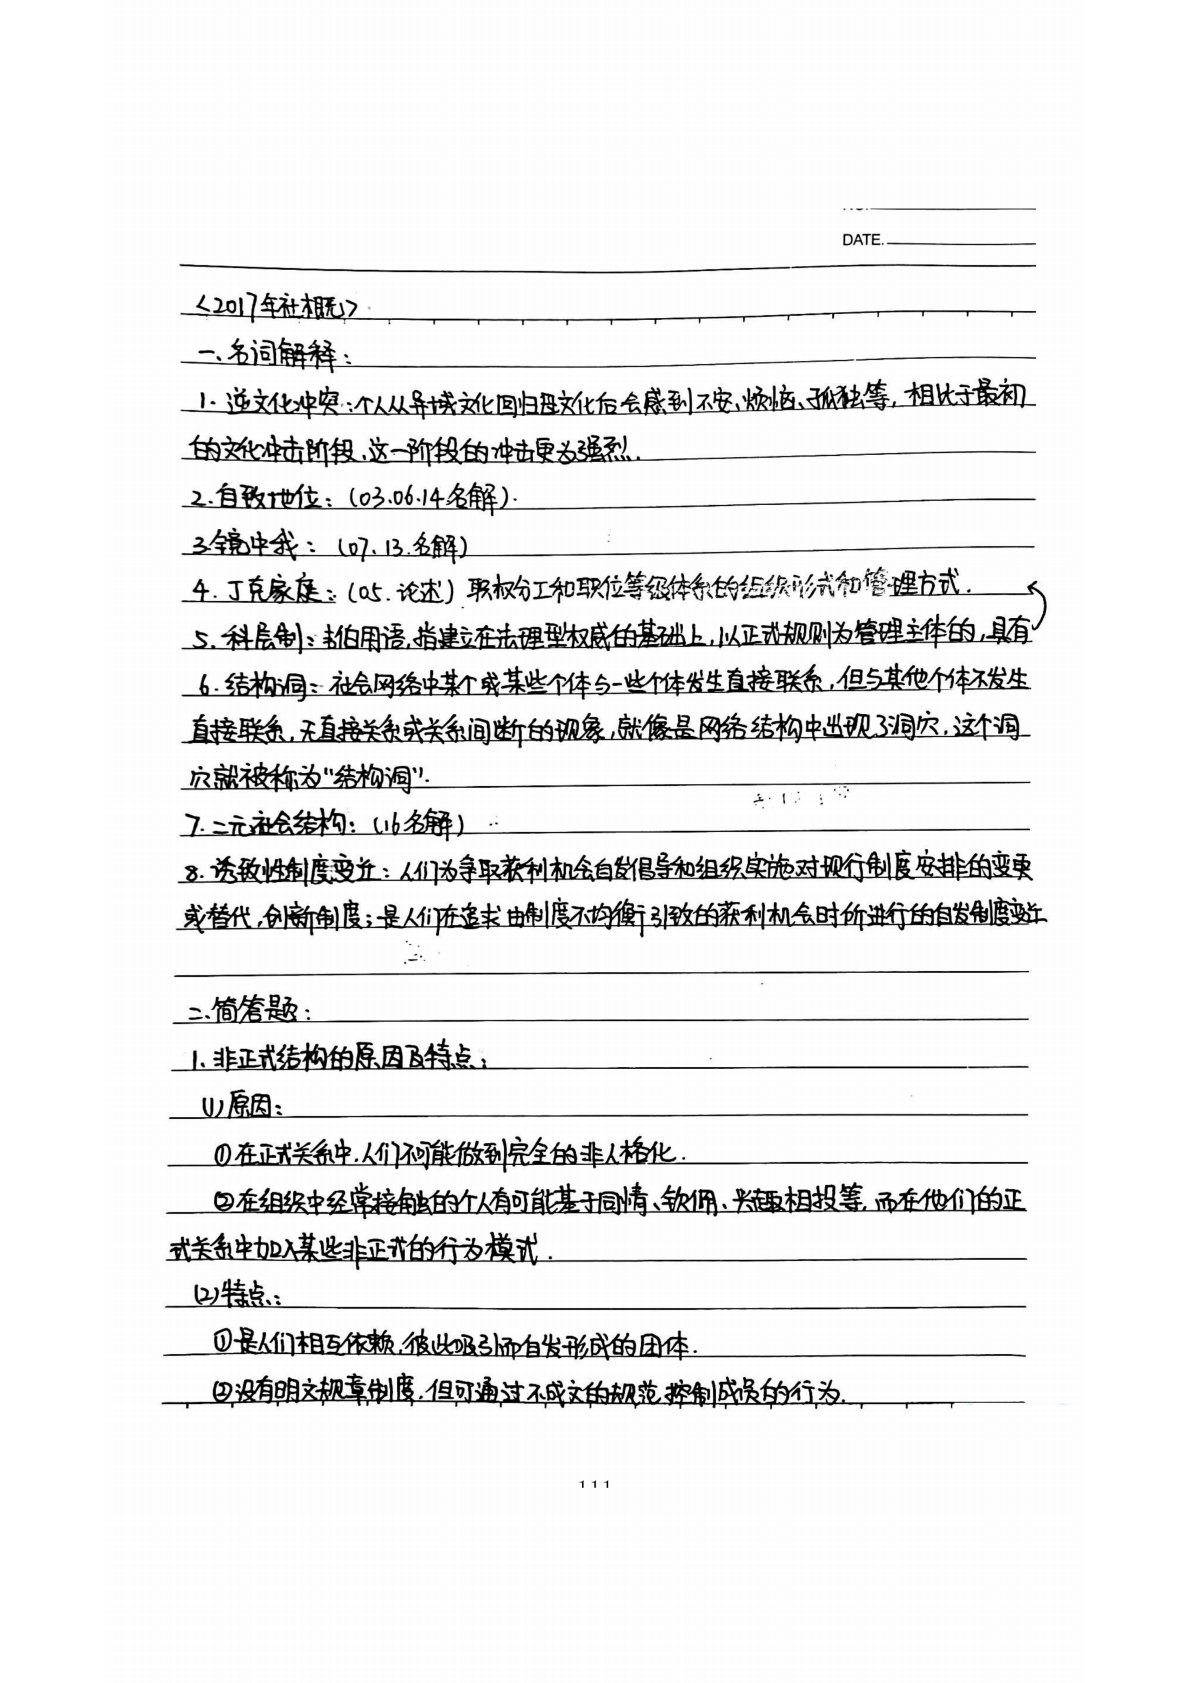 DATE.
<2017年社概>
一、名词解释：
1. 逆文化冲突：个人从异域文化回归母文化后会感到不安、烦恼、孤独等，相比于最初
的文化冲击阶段，这一阶段的冲击更为强烈.
2. 自致地位：(03.06.14名解).
3. 镜中我：(07.13.名解)
4. 丁克家庭：(05.论述) 职权分工和职位等级体系的组织形式和管理方式.
5. 科层制：韦伯用语，指建立在法理型权威的基础上，以正式规则为管理主体的，具有
6. 结构洞：社会网络中某个或某些个体与一些个体发生直接联系，但与其他个体不发生
直接联系，无直接关系或关系间断的现象，就像是网络结构中出现了洞穴，这个洞
穴就被称为"结构洞".
7. 二元社会结构：(16名解)
8. 诱致性制度变迁：人们为争取获利机会自发倡导和组织实施对现行制度安排的变更
或替代，创新制度；是人们在追求由制度不均衡引致的获利机会时所进行的自发制度变迁
二、简答题：
1. 非正式结构的原因及特点：
(1)原因：
①在正式关系中，人们不可能做到完全的非人格化.
②在组织中经常接触的个人有可能基于同情、钦佩、兴趣相投等，而在他们的正
式关系中加入某些非正式的行为模式.
(2)特点：
①是人们相互依赖，彼此吸引而自发形成的团体.
②没有明文规章制度，但可通过不成文的规范控制成员的行为.
111